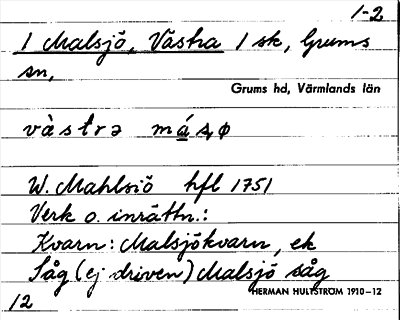 1-2
1 Malsjö, Västra 1 sk, Grums
sn,
Grums hd, Värmlands län
vàstrə másˌø
W. Mahlsiö hfl 1751
Verk o. inrättn.:
Kvarn: Malsjökvarn, ek
Såg (ej driven) Malsjö såg
HERMAN HULTSTRÖM 1910–12
12